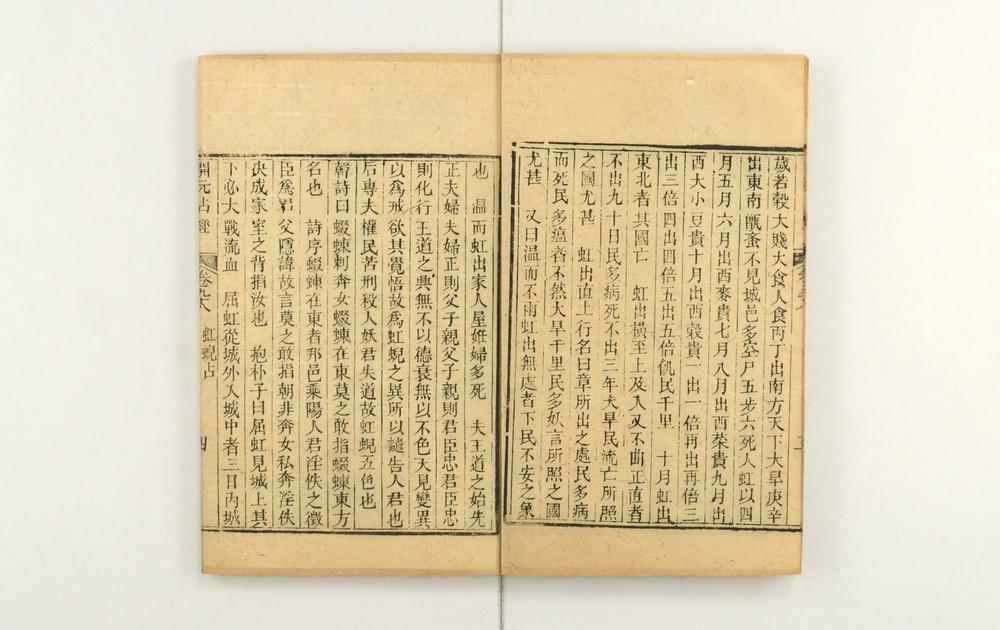 歲若穀大賤大食人食丙丁出南方天下大旱庚辛
出東南甑蚕不見城邑多空尸五步六死人虹以四
月五月六月出西麥貴七月八月出西菜貴九月出
西大小豆貴十月出西穀貴一出一倍再出再倍三
出三倍四出四倍五出五倍飢民千里　十月虹出
東北者其國亡　虹出橫至上及入又不曲正直者
不出九十日民多病死不出三年大旱民流亡所照
之國尤甚　虹出直上行名曰章所出之處民多病
而死民多瘟者不然大旱千里民多妖言所照之國
尤甚　又曰温而不雨虹出無處者下民不安之象
也　温而虹出家人屋姙婦多死　夫王道之始先
正夫婦夫婦正則父子親父子親則君臣忠君臣忠
則化行王道之興無不以德衰無以不色天見變異
以爲戒欲其覺悟故爲虹蜺之異所以譴告人君也
后專夫權民苦刑殺人妖君失道故虹蜺五色也
韓詩曰蝃蝀刺奔女蝃蝀在東莫之敢指蝃蝀東方
名也　詩序蝃蝀在東者邪邑乘陽人君淫佚之徵
臣爲君父隱諱故言莫之敢指朝非奔女私奔淫佚
決成家室之背指汝也　抱朴子曰屈虹見城上其
下必大戰流血　屈虹從城外入城中者三日內城
開元占經　卷九八　虹蜺占　四